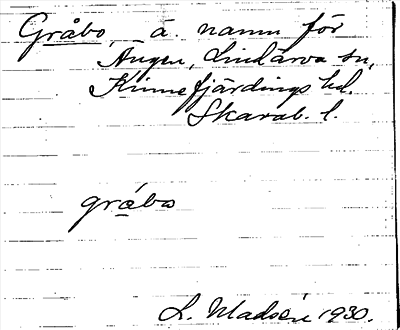 Gråbo, ä. namn för
Ängen, Lindärva sn,
Kinnefjärdings hd.
Skarab. l.
gråbo
L. Madsén 1930.